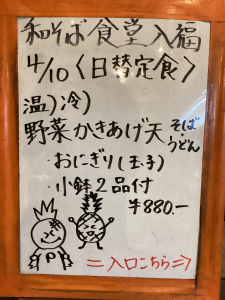 和そば食堂入福
4/10〈日替定食〉
温)冷)
野菜かきあげ天そば・うどん
・おにぎり(玉子)
・小鉢2品付
¥880.-
P
=入口こちら⇒